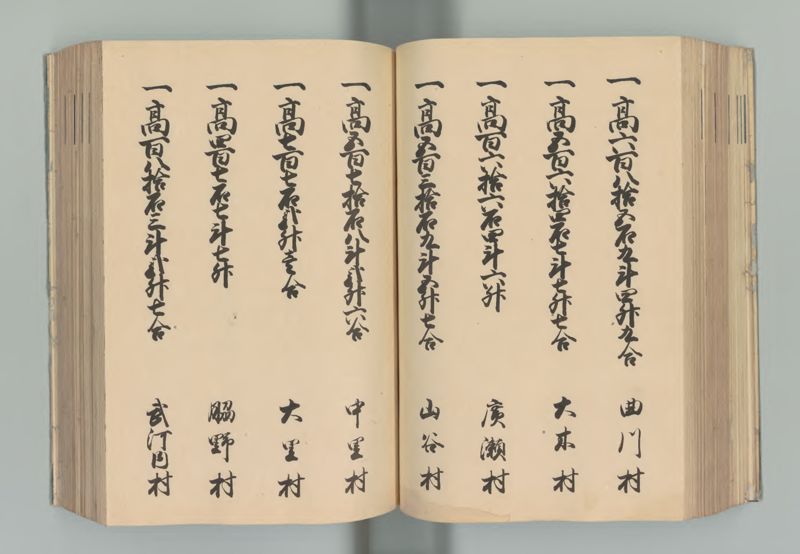 一高六百八拾五石九斗四升九合 曲川村
一高五百六拾四石七斗七升七合 大木村
一高百六拾六石四斗六升 廣瀬村
一高五百三拾石九斗五升七合 山谷村
一高五百七拾石八斗弐升六合 中里村
一高七百七石弐升壱合 大里村
一高四百七石七斗七升 脇野村
一高百八拾石三斗弐升七合 武村